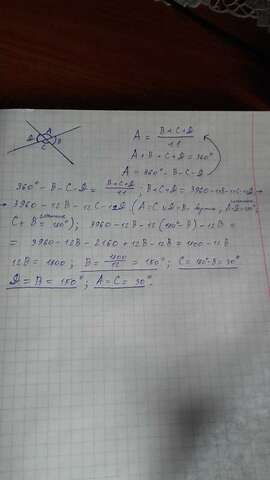 A
D
B
C
A = B+C+D / 11
A+B+C+D = 360°
A = 360° - B - C - D
360° - B - C - D = B+C+D / 11 ; B+C+D = 3960 - 11B - 11C - 11D
3960 - 12B - 12C - 12D (A=C и D=B - верт
C+B = 180°); 3960 - 12B - 12(180° - B) - 12B =
= 3960 - 12B - 2160 + 12B - 12B = 1800 - 12B
12B = 1800; B = 1800 / 12 = 150°; C = 180° - B = 30°
D = B = 150°; A = C = 30°.